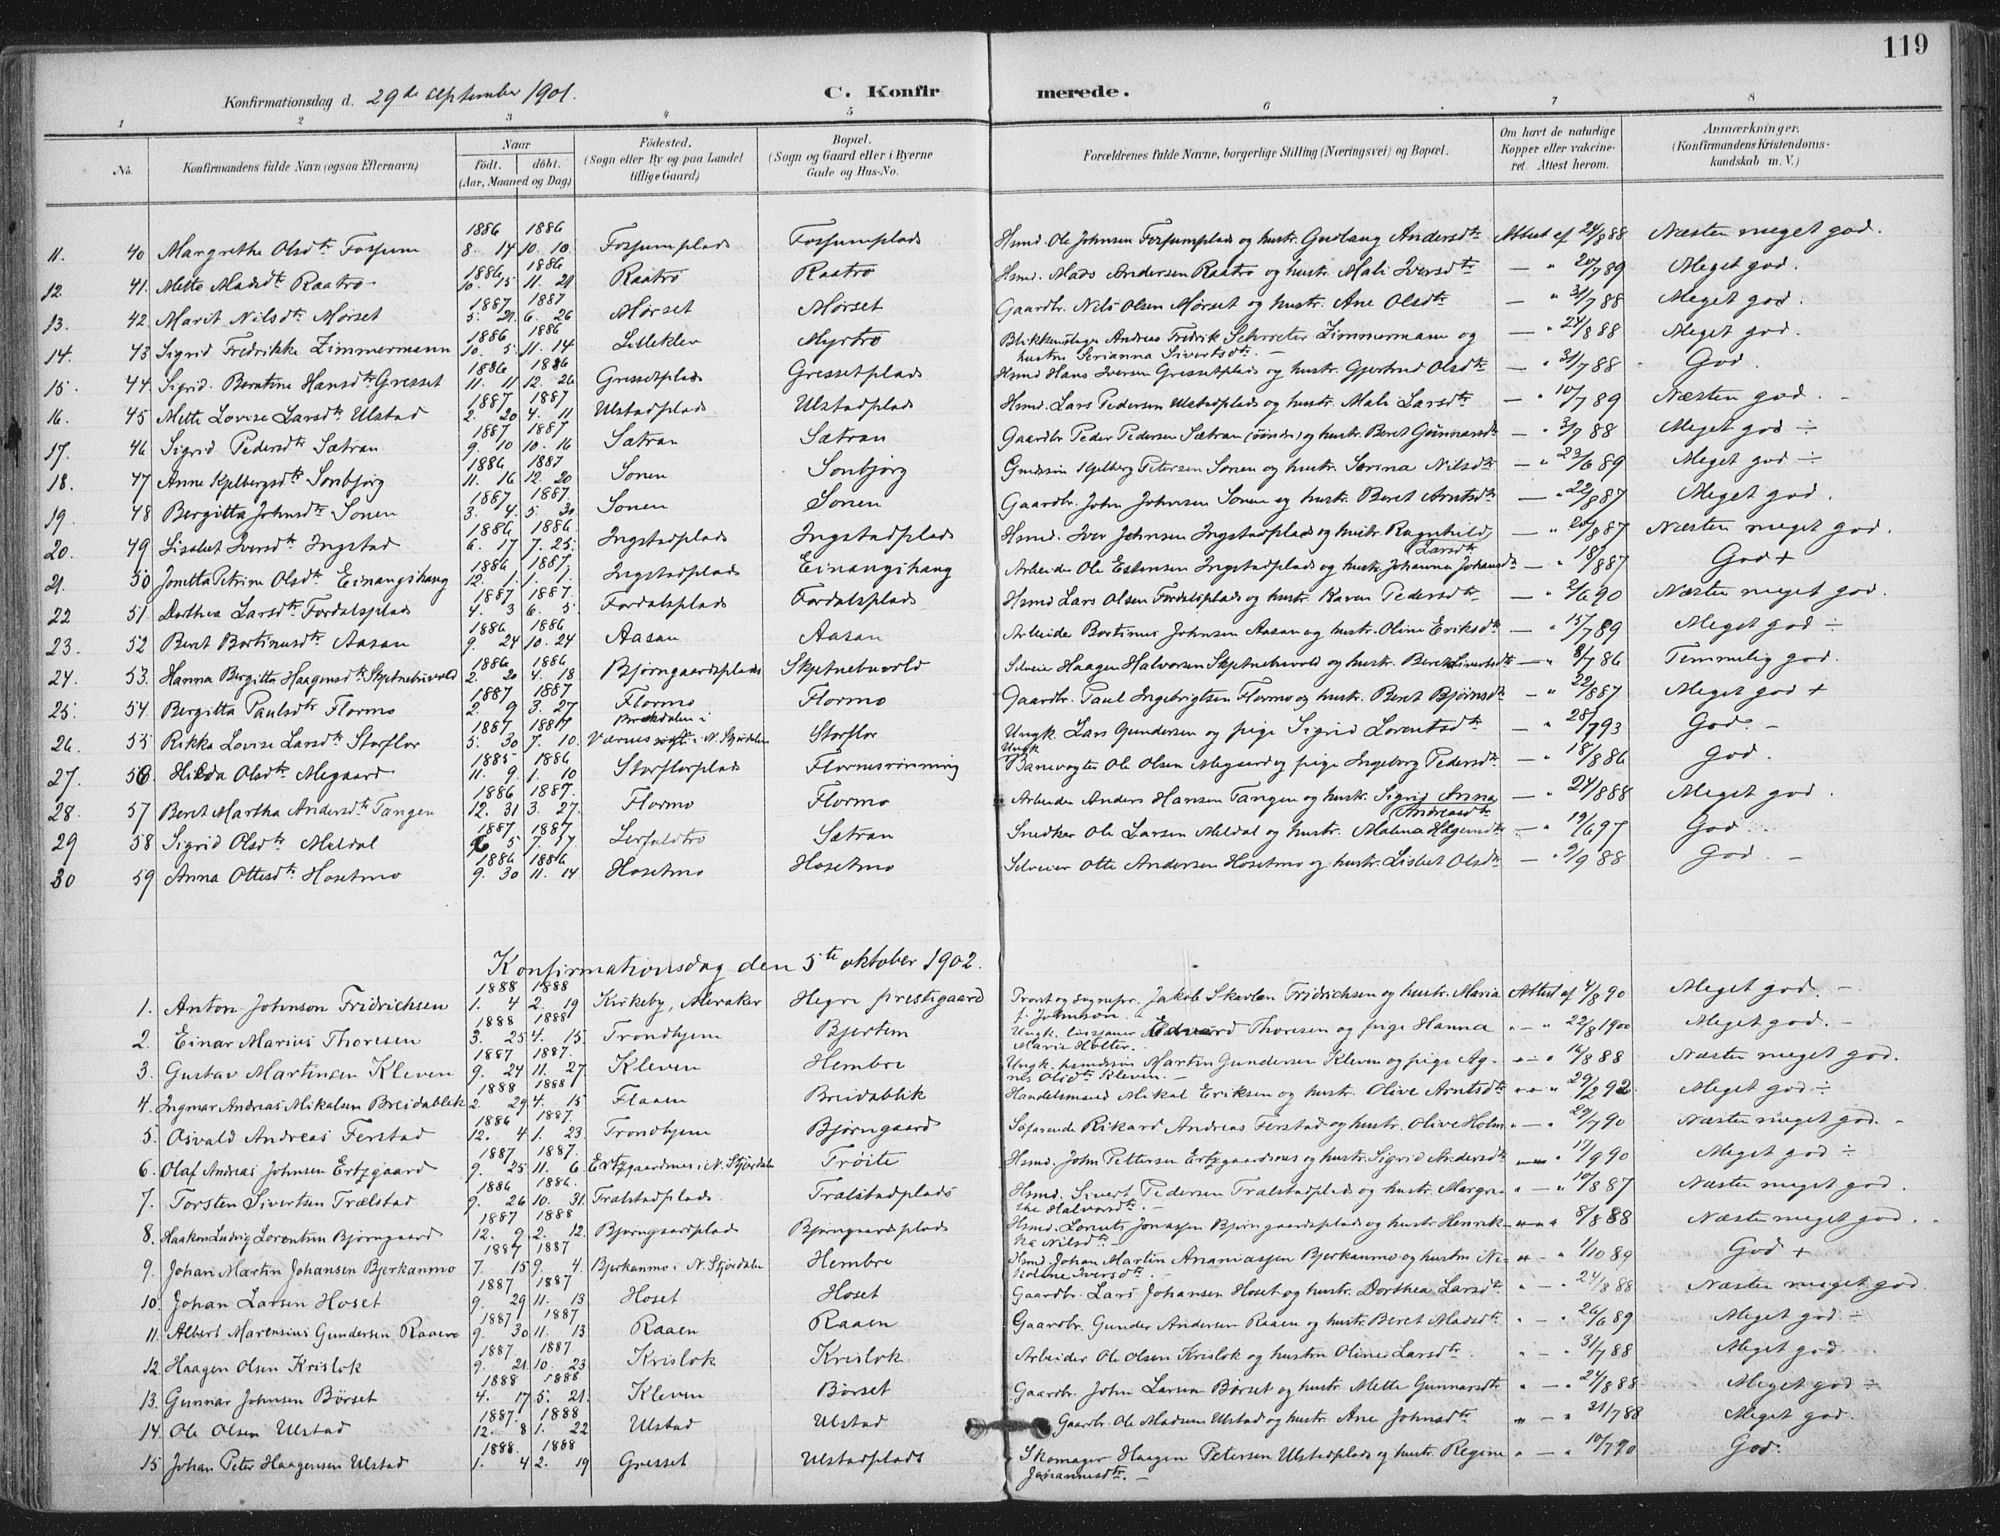 119
Konfirmationsdag d. 29de september 1901. C. Konfirmerede.
1 2 3 4 5 6 7 8
No. Konfirmandens fulde Navn (ogsaa Efternavn) Naar født. døbt. (Aar, Maaned og Dag) Fødested. (Sogn eller By og paa Landet tillige Gaard) Bopæl. (Sogn og Gaard eller i Byerne Gade og Hus-No. Forældrenes fulde Navne, borgerlige Stilling (Næringsvei) og Bopæl. Om havt de naturlige Kopper eller vakcineret. Attest herom. Anmærkninger. (Konfirmandens Kristendomskundskab m. V.)
11. 40 Margrethe Olsdtr Fossum 1886 8. 14 1886 10. 10 Fossumplads Fossumplads Hsmd. Ole Johnsen Fossumplads og hustr. Gudlaug Andersdtr Attest af 24/8 88 Næsten meget god.
12. 41. Mette Madsdtr Raatrø 1886 10. 15 1886 11. 21 Raatrø Raatrø Hsmd. Mads Andersen Raatrø og hustr. Mali Iversdtr — " 20/7 89 Meget god.
13. 42 Marit Nilsdtr Mørset 1887 5. 21 1887 6. 26 Mørset Mørset Gaardbr. Nils Olsen Mørset og hustr. Ane Olsdtr — " 31/7 88 Meget god.
14. 43 Sigrid Fredrikke Zimmermann 1886 10. 5 1886 11. 14 Lilleklev Myrtrø Blikkenslager Andreas Fredrik Schrøeter Zimmermann og hustru Serianna Sivertsdtr. — — " 24/8 88 Meget god.
15. 44. Sigrid. Berntine Hansdtr Gresset 1886 11. 11 1886 12. 26 Gressetplads Gressetplads Hsmd Hans Iversen Gressetplads og hustr. Gjertrud Olsdtr — " 31/7 88 God.
16. 45 Mette Lovise Larsdtr Ulstad 1887 2. 20 1887 4. 11 Ulstadplads Ulstadplads Hsmd. Lars Pedersen Ulstadplads og hustr. Mali Larsdtr — " 10/7 89 Næsten god. -
17. 46 Sigrid Pedersdtr Sætran 1887 9. 10 1887 10. 16 Sætran Sætran Gaardbr Peder Pedersen Sætran (søndr) og hustr. Beret Gunnarsdtr — " 3/7 88 Meget god ÷
18. 47 Anne Kjelbergsdtr Sonbjørg 1886 11. 16 1887 12. 20 Sonen Sonbjørg Kjelberg Petersen Sonen og hustr. Serina Nilsdtr — " 23/6 89 Meget god ÷
19. 48 Bergitta Johnsdtr Sonen 1887 3. 4. 1887. 5. 30 Sonen Sonen Gaardbr. John Johnsen Sonen og hustr. Beret Arntsdtr — " 22/8 87 Meget god.
20. 49 Lisbet Iversdtr Ingstad 1886 6. 17 1886. 7. 25. Ingstadplads Ingstadplads Hsmd. Iver Johnsen Ingstadplads og hustr. Ragnhild Larsdtr — " 20/8 87 Næsten meget god.
21. 50 Jonetta Petrine Olsdtr Einangshaug 1886 12. 1. 1887. 1. 1. Ingstadplads Einangshaug Arbeider Ole Estensen Ingstadplads og hustr. Johanna Johansdtr — " 18/8 87 God +
22 51 Dorthea Larsdtr Fordalsplads 1887 4. 3 1887. 6. 5 Fordalsplads Fordalsplads Hsmd Lars Olsen Fordalsplads og hustr. Karen Pedersdtr — " 2/6 90 Næsten meget god.
23. 52 Beret Bortinusdtr Aasan 1886 9. 24 1886 10. 24 Aasan Aasan Arbeider Bortinus Johnsen Aasan og hustr. Oline Eriksdtr — " 15/7 89 Meget god ÷
24. 53. Hanna Bergitta Haagensdtr Skjetnebuvold 1886 2. 20 1886 4. 18 Bjørngaardsplads Skjetnebuvold Selveier Haagen Halvorsen Skjetnebuvold og hustr. Beret Sivertsdtr — " 8/7 86 Temmelig god.
25. 54. Bergitta Paulsdtr Flormo 1887 2. 9 1887 3. 27 Flormo Flormo Gaardbr. Paul Ingebrigtsen Flormo og hustr. Beret Bjørnsdtr — " 22/8 87 Meget god +
26. 55 Rikka Lovise Larsdtr Storflor 1887 5. 30 1887 7. 10. Værnes i N. Stjørdalen Storflor Ungk. Lars Gundersen og pige Sigrid Lorentsdtr — " 28/7 93 God. -
27. 56 Hilda Olsdtr Megaard 1885 11. 9 1886 1. 10 Storflorplads Flornesrønning Ungk Banevogter Ole Olsen Megaard og pige Ingeborg Pedersdtr. — " 18/8 86 God.
28. 57 Beret Martha Andersdtr Tangen 1886 12. 31 1887. 3. 27. Flormo Flormo Arbeider Anders Hansen Tangen og hustr. Sigrid Anna Andreasdtr — " 24/8 88 Meget god.
29 58 Sigrid Olsdtr Meldal 1887 6 5 1887 7. 17. Lerfaldtrø Sætran Snedker Ole Larsen Meldal og hustr. Malena Hågensdtr — " 19/6 97 God.
30 59 Anna Ottesdtr Hosetmo 1886 9. 30 1886 11. 14 Hosetmo Hosetmo Selveier Otte Andersen Hosetmo og hustr. Lisbet Olsdtr — " 9/9 88 God. -
Konfirmationsdag den 5te oktober 1902.
1. Anton Johnson Fridrichsen 1888 1. 4 1888 2. 19 Kirkeby, Meraker Hegre prestegaard Provst og sognepr. Jakob Skavlan Fridrichsen og hustr. Maria f. Johnson. Attest af 4/8 90 Meget god. -
2. Einar Marius Thoresen 1888 3. 25 1888 4. 15 Trondhjem Bjertem Ungk. Edvard Thoresen og pige Hanna Marie Holter. - " - " 22/8 1900 Meget god. -
3. Gustav Martinsen Kleven 1887 9. 24 1887. 11. 27 Kleven Hembre Ungk. husmdssøn Martin Gundersen Kleven og pige Agnes Olsdtr Kleven. - " - " 16/8 88 Næsten meget god.
4. Ingmar Andreas Mikalsen Breidablik 1888 2. 29 1888 4. 15 Flaaen Breidablik Handelsmand Mikal Eriksen og hustr. Olive Arntsdtr " - " 29/2 92 Meget god ÷
5. Osvald Andreas Ferstad 1886 12. 4 1887. 1. 23. Trondhjem Bjørngaard Søfarende Rikard Andreas Ferstad og hustr. Olive Holm " - " 29/7 90 Næsten meget god. -
6. Olaf Andreas Johnsen Ertzgaard 1887 9. 25 1887. 11. 6 Ertzgaardnes i N. Stjørdalen Trøite Hsmd. John Pettersen Ertzgaardsnes og hustr. Sigrid Andersdtr 17/9 90 Meget god ÷
7. Torsten Sivertsen Trælstad 1886 9. 26 1886. 10. 31. Trælstadplads Trælstadplads Hsmd. Sivert Pedersen Trælstadplads og hustr. Margrethe Halvorsdtr. - " - " 10/8 87 Næsten meget god.
8. Haakon Ludvig Lorentsen Bjørngaard 1887 12. 9 1888 2. 12. Bjørngaardplads Bjørngaardplads Hsmd. Lorents Jonassen Bjørngaardsplads og hustr Henrikka Nilsdtr - " - " 8/8 88 Næsten meget god.
9. Johan Martin Johansen Bjerkanmo 1887 7. 15 1887 9. 4. Bjerkanmo i N. Stjørdalen Hembre Hsmd Johan Martin Ananiassen Bjerkanmo og hustru Nikoline Iversdtr. - " - " 1/10 89 God +
10. Johan Larsen Hoset 1887 9. 29 1887 11. 13 Hoset Hoset Gaardbr. Lars Johansen Hoset og hustr. Dorthea Larsdtr " - " 24/8 88 Næsten meget god
11. Albert Marensius Gundersen Raaen 1887 9. 30 1887 11. 13 Raaen Raaen Gaardbr. Gunder Andersen Raaen og hustr Beret Madsdtr. " - " 26/6 89 Meget god ÷
12. Haagen Olsen Krislok 1887. 9. 21 1887 10. 23 Krislok Krislok Arbeider Ole Olsen Krislok og hustru Oline Larsdtr. " - " 31/7 88 Meget god
13. Gunnar Johnsen Børset 1888 4. 17 1888 5. 21. Kleven Børset Gaardbr. John Larsen Børset og hustr Mette Gunnarsdtr " - " 24/8 88 Meget god ÷
14. Ole Olsen Ulstad 1887. 12. 8 1888 1. 22 Ulstad Ulstad Gaardbr. Ole Madsen Ulstad og hustr. Ane Johnsdtr " - " 21/7 88 Meget god.
15 Johan Peter Haagensen Ulstad 1888. 1. 4 1888 2. 19 Gresset Ulstadplads Skomager Haagen Petersen Ulstadplads og hustr. Regine Johannesdtr. - " - " 10/7 90 God.